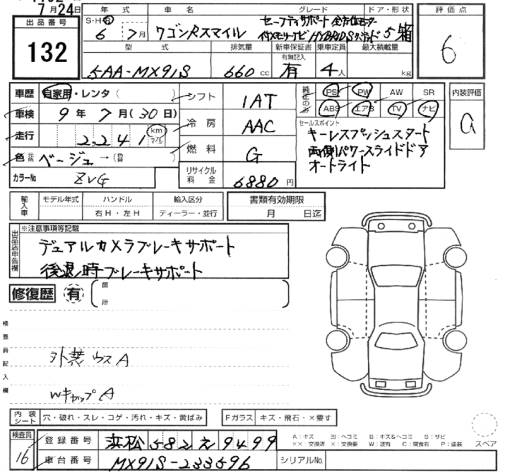 7月24日
出品番号
132
年式 車名 グレード ドア・形状 評価点
S・H・R 6年7月 ワゴンRスマイル セーフティサポート 全方位モニター
メモリーナビ HYBRID Sツートン 5箱
6
型式 排気量 新車保証書 乗車定員 最大積載量
有無記入
5AA-MX91S 660cc 有 4人 kg
車歴 自家用・レンタ( ) シフト 1AT
PS PW AW SR 内装評価
ABS エアB TV ナビ a
車検 9年7月(30日) 冷房 AAC
セールスポイント
キーレスプッシュスタート
両側パワースライドドア
オートライト
走行 2241 km マイル
色 元色 ベージュ→(替) 燃料 G
カラーNo. ZVG リサイクル料金 6880円
輸入車 モデル年式 ハンドル 輸入区分 書類有効期限
年 右H・左H ディーラー・並行 月 日迄
出品店申告欄
※注意事項等記載
デュアルカメラブレーキサポート
後退時ブレーキサポート
修復歴 有 箇所
検査員記入欄
外装ウスA
WキャップA
内装シート 穴・破れ・スレ・コゲ・汚れ・キズ・黄ばみ Fガラス キズ・飛石・×要す
スペア
検査員 16
登録番号 浜松582え9499
A:キズ U:ヘコミ B:キズ&ヘコミ S:サビ
××:交換済 ×:要交換 W:波有 C:腐食有 P:塗装
車台番号 MX91S-233596 シリアルNo.